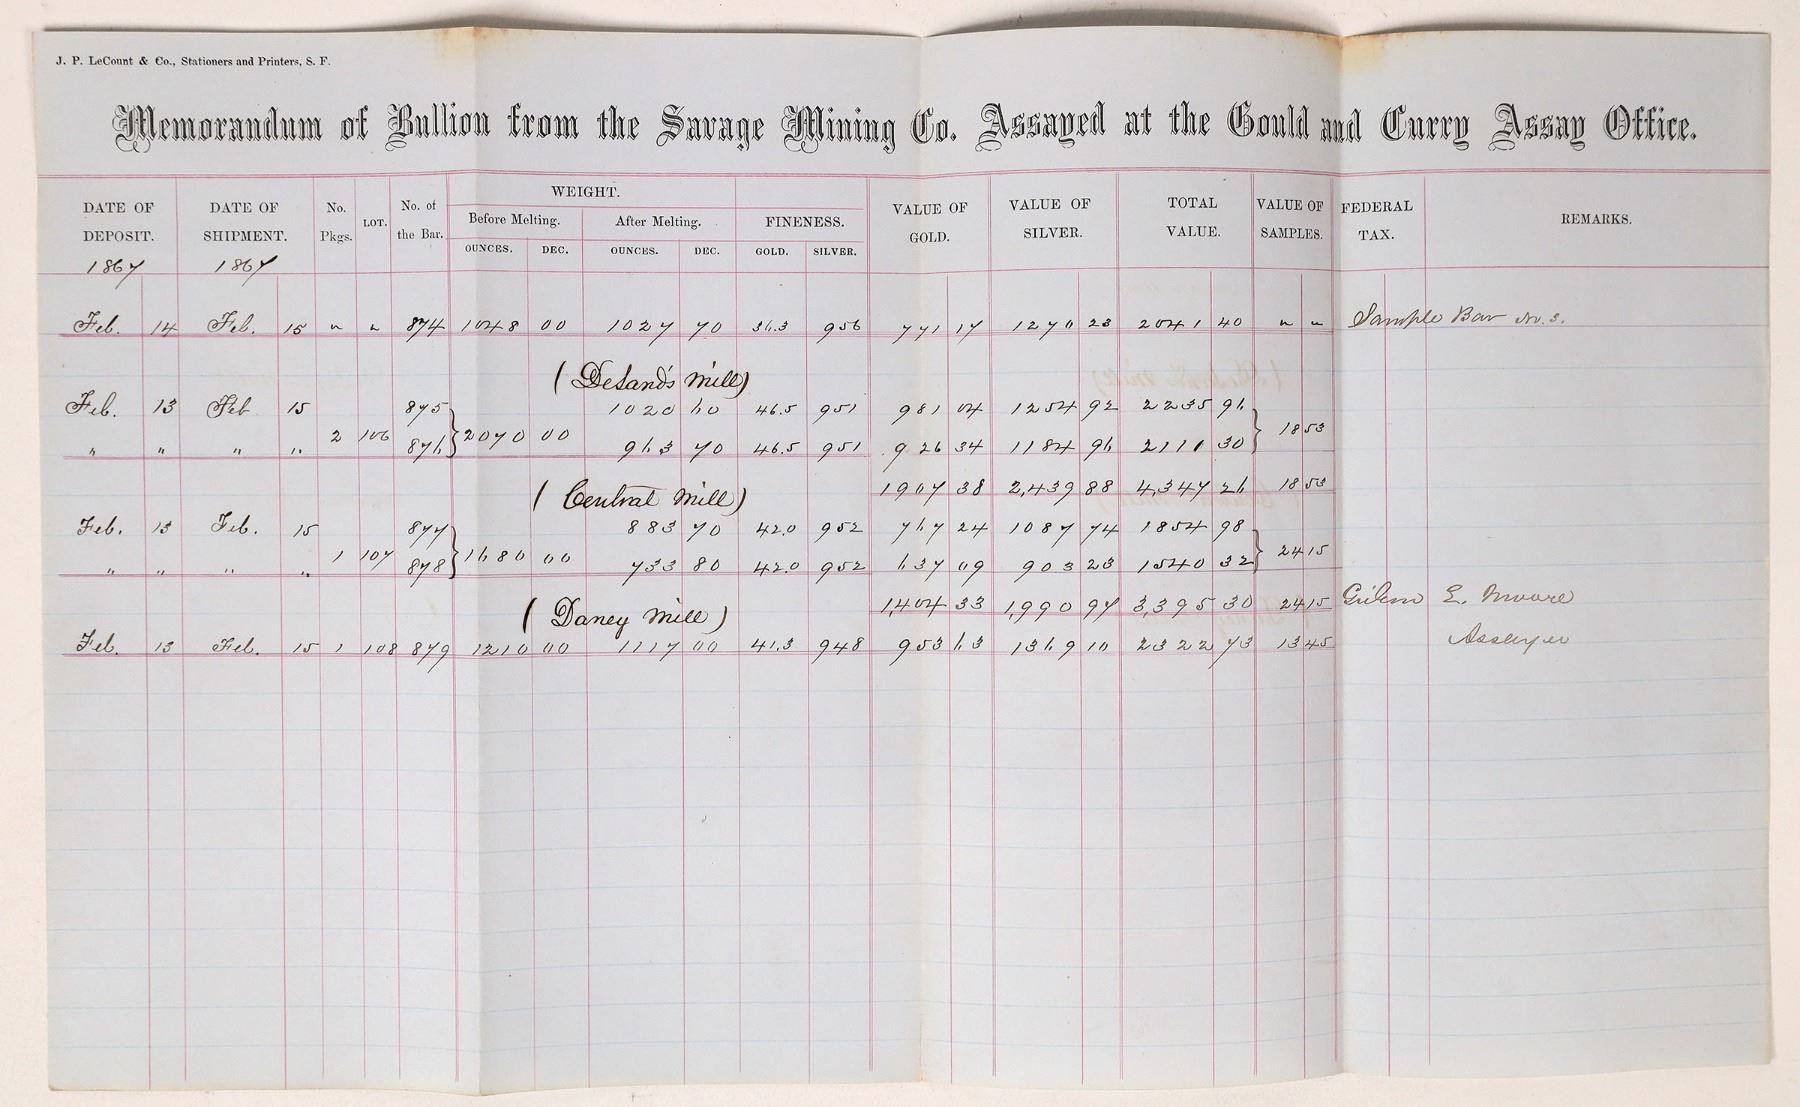 J. P. LeCount & Co., Stationers and Printers, S. F.
Memorandum of Bullion from the Savage Mining Co. Assayed at the Gould and Curry Assay Office.
DATE OF DEPOSIT. DATE OF SHIPMENT. No. Pkgs. LOT. No. of the Bar. WEIGHT. Before Melting. After Melting. FINENESS. VALUE OF GOLD. VALUE OF SILVER. TOTAL VALUE. VALUE OF SAMPLES. FEDERAL TAX. REMARKS.
OUNCES. DEC. OUNCES. DEC. GOLD. SILVER.
1867 1867
Feb. 14 Feb. 15 " " 874 1048 00 1027 70 36.3 956 771 17 1270 23 2041 40 " " Sample Bar No. 3.
( Deland's Mill )
Feb. 13 Feb 15 875 1020 60 46.5 951 981 04 1254 92 2235 96
2 106 2070 00 18 53
" " " " 876 963 70 46.5 951 926 34 1184 96 2111 30
1907 38 2,439 88 4,347 26 18 53
( Central Mill )
Feb. 13 Feb. 15 877 883 70 42.0 952 767 24 1087 74 1854 98
1 107 1680 00 24 15
" " " " 878 733 80 42.0 952 637 09 903 23 1540 32
1,404 33 1,990 97 3,395 30 24 15 E. Moore
( Daney Mill )
Feb. 13 Feb. 15 1 108 879 1210 00 1117 00 41.3 948 953 63 1369 10 2322 73 13 45 Assayer